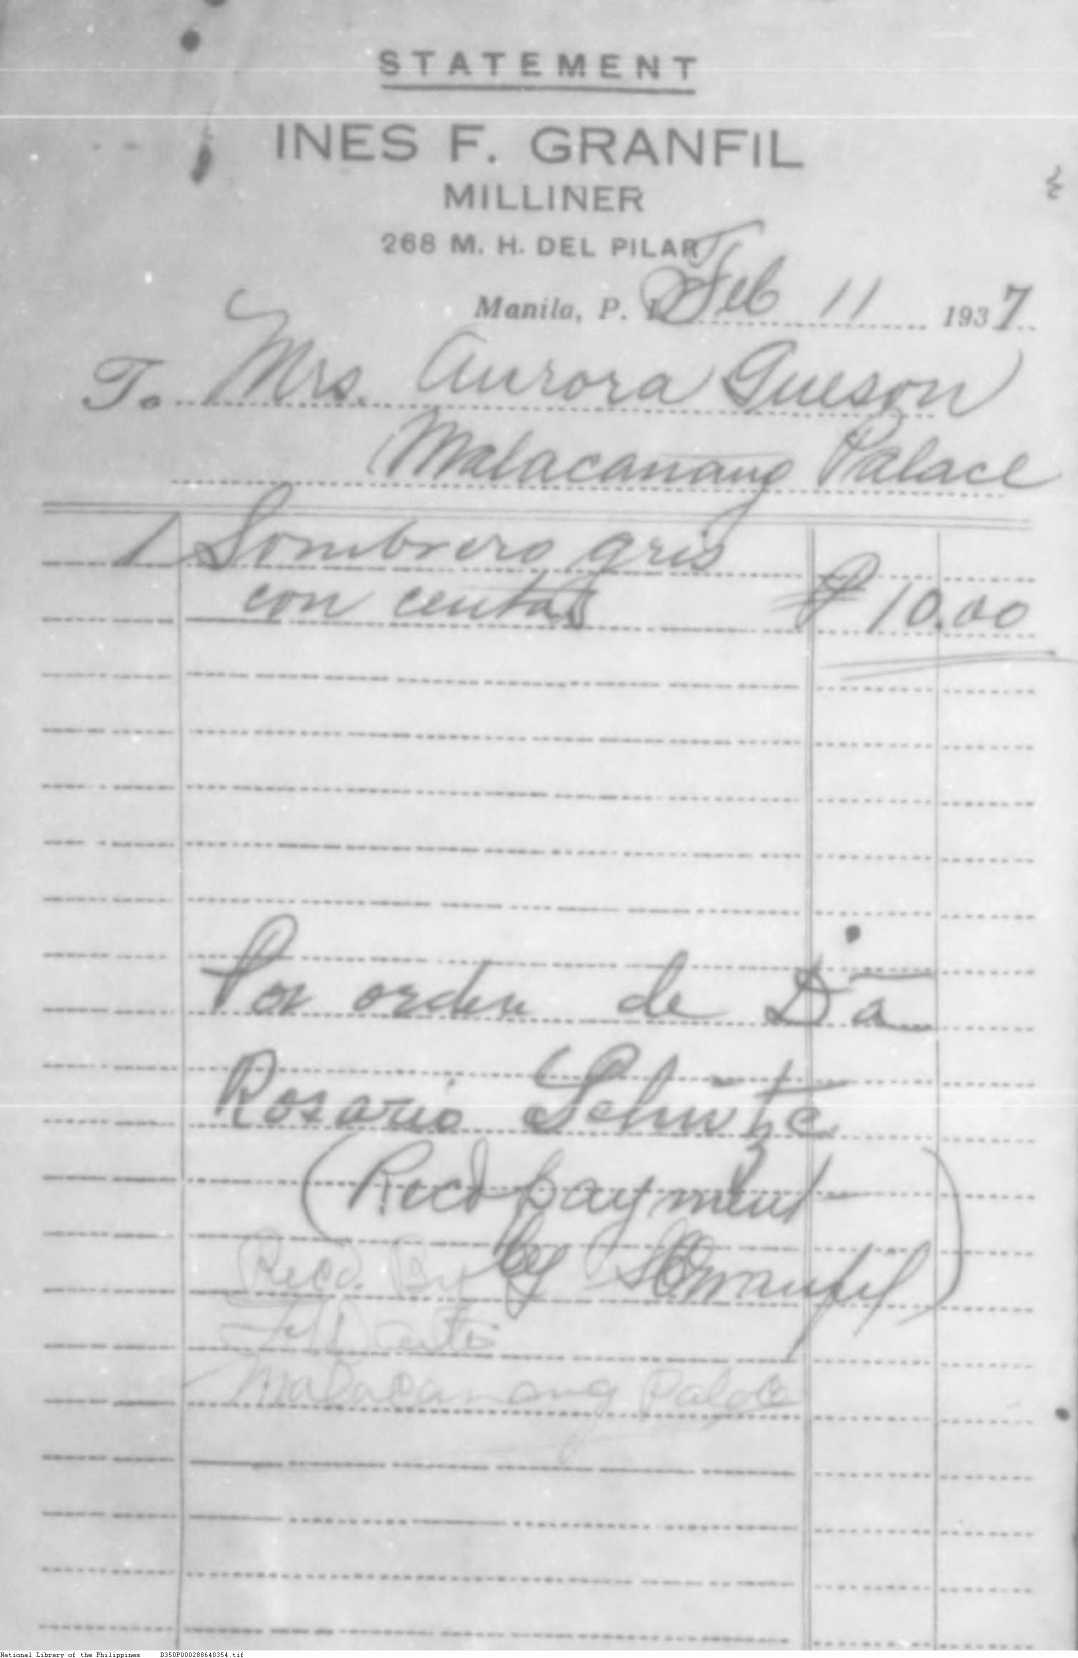 STATEMENT
INES F. GRANFIL
MILLINER
268 M. H. DEL PILAR
Manila, P. I. Feb 11 1937
To Mrs. Aurora Gueson
Malacanang Palace
1 Sombrero gris
con centas ₱10.00
Por orden de Dña
Rosario Schütze
(Recd payment
by
Recd. By
Malacanang Palace
National Library of the Philippines D350P000288640354.tif